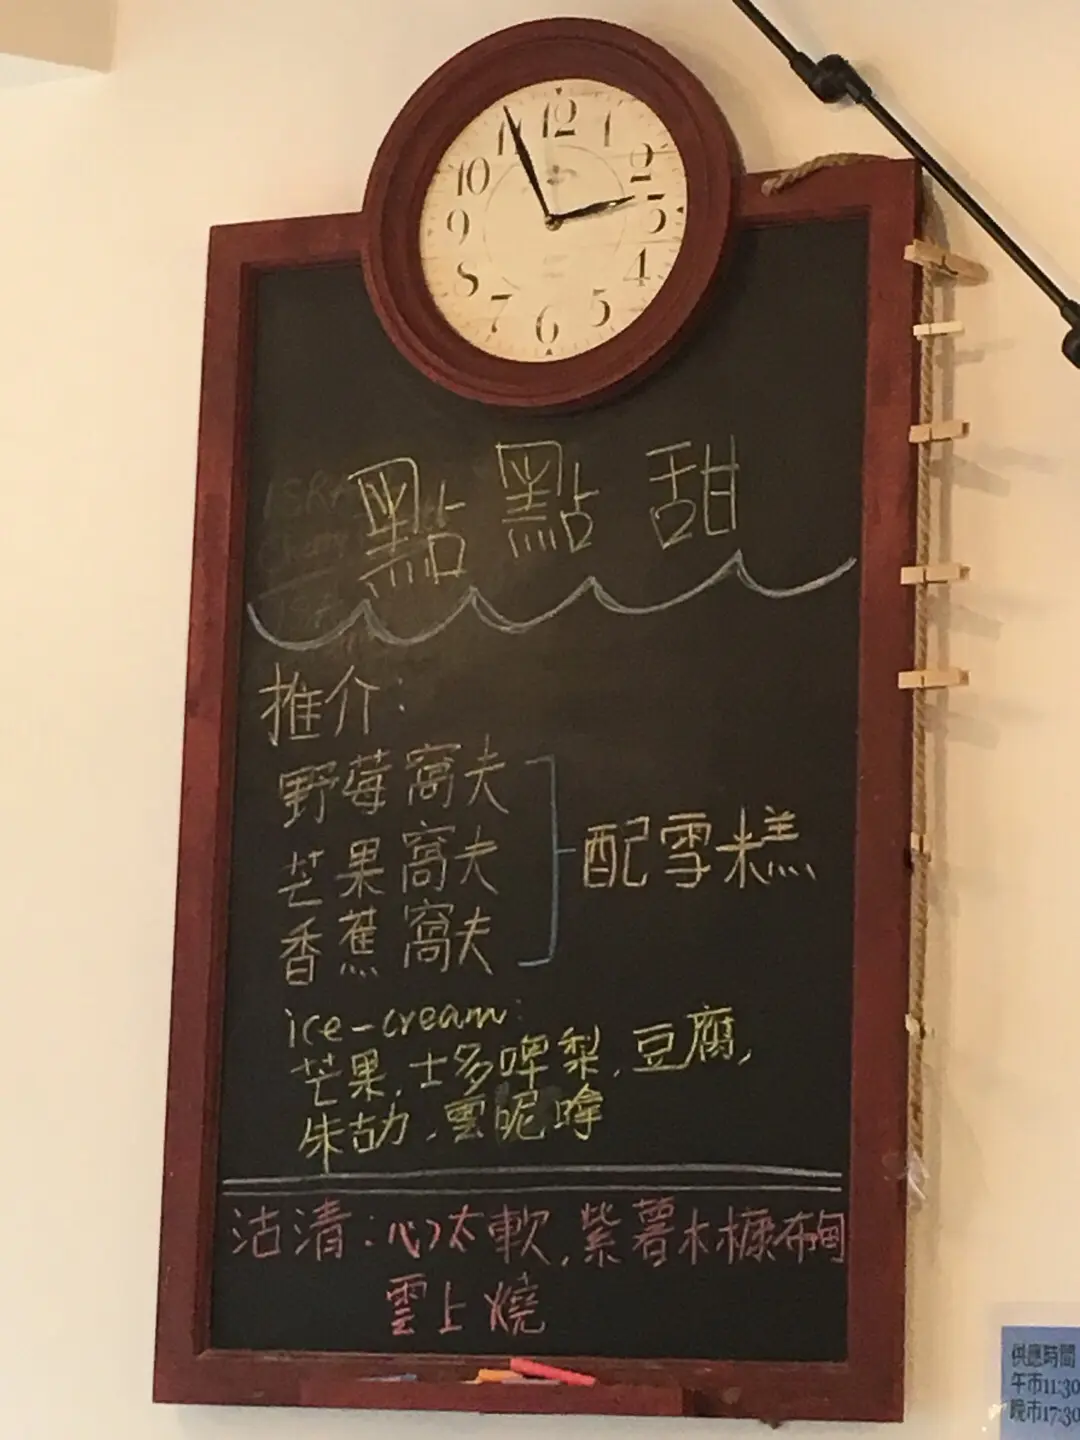 12
1
2
3
4
5
6
7
8
9
10
11
點點甜
推介:
野莓窩夫
芒果窩夫
香蕉窩夫
配雪糕
ice-cream:
芒果,士多啤梨,豆腐,
朱古力,雲呢嗱
沽清:心太軟,紫薯木糠布甸
雲上燒
供應時間
午市11:30
晚市17:30